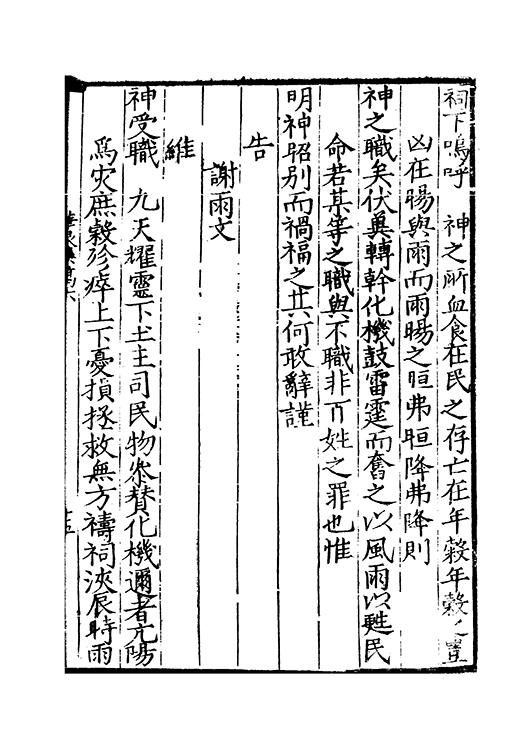 祠下嗚呼　神之所血食在民之存亡在年穀年穀之豐
凶在暘與雨而雨暘之恒弗恒降弗降則
神之職矣伏冀轉斡化機鼓雷霆而奮之以風雨以甦民
命若某等之職與不職非百姓之罪也惟
明神昭别而禍福之其何敢辭謹
告
謝雨文
維
神受職　九天耀靈下土主司民物叅賛化機邇者亢陽
為灾庶穀殄瘁上下憂損拯救無方禱祠浹辰時雨